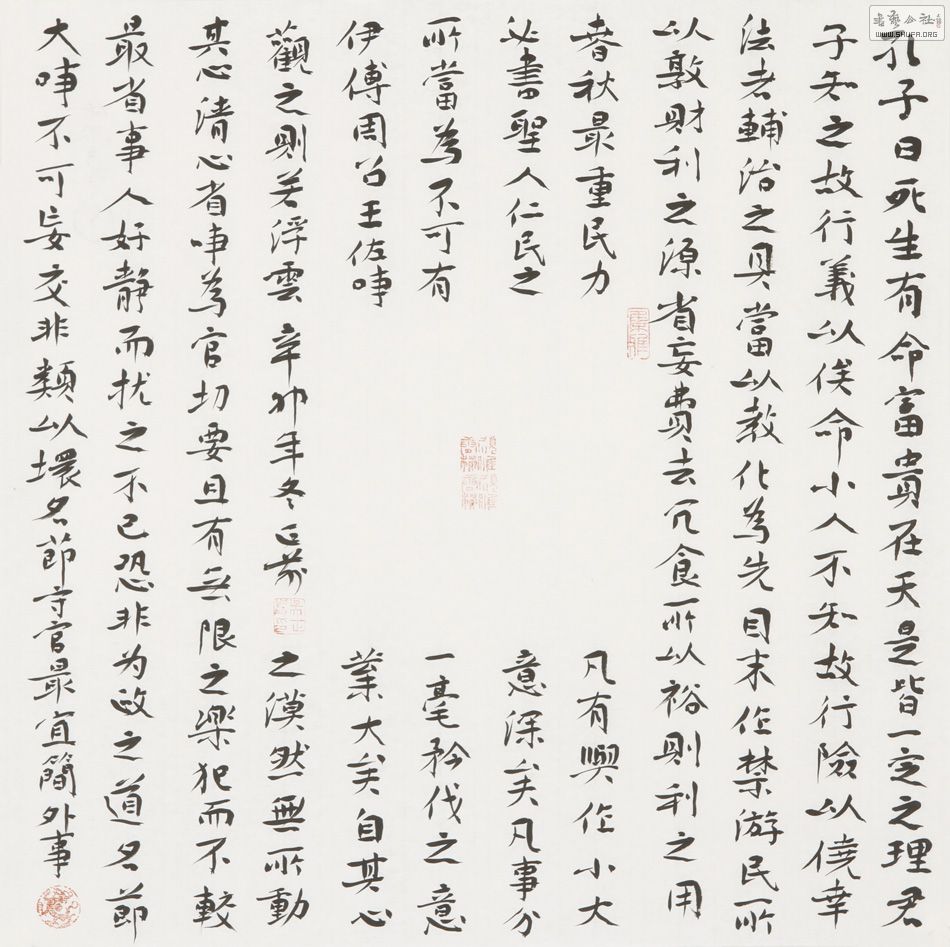 孔子曰死生有命富貴在天是皆一定之理君
子知之故行義以俟命小人不知故行險以僥幸
法者輔治之具當以教化為先目末作禁游民所
以敦財利之源省妄費去冗食所以裕則利之用
春秋最重民力凡有興作小大
必書聖人仁民之意深矣凡事分
所當為不可有一毫矜伐之意
伊傅周召王佐事業大矣自其心
觀之則若浮雲辛卯年冬之漠然無所動
其心清心省事為官切要且有無限之樂犯而不較
最省事人好静而扰之不已恐非为政之道名節
大事不可妄交非類以壞名節守官最宜簡外事
書藝公社
WWW.SHUFA.ORG